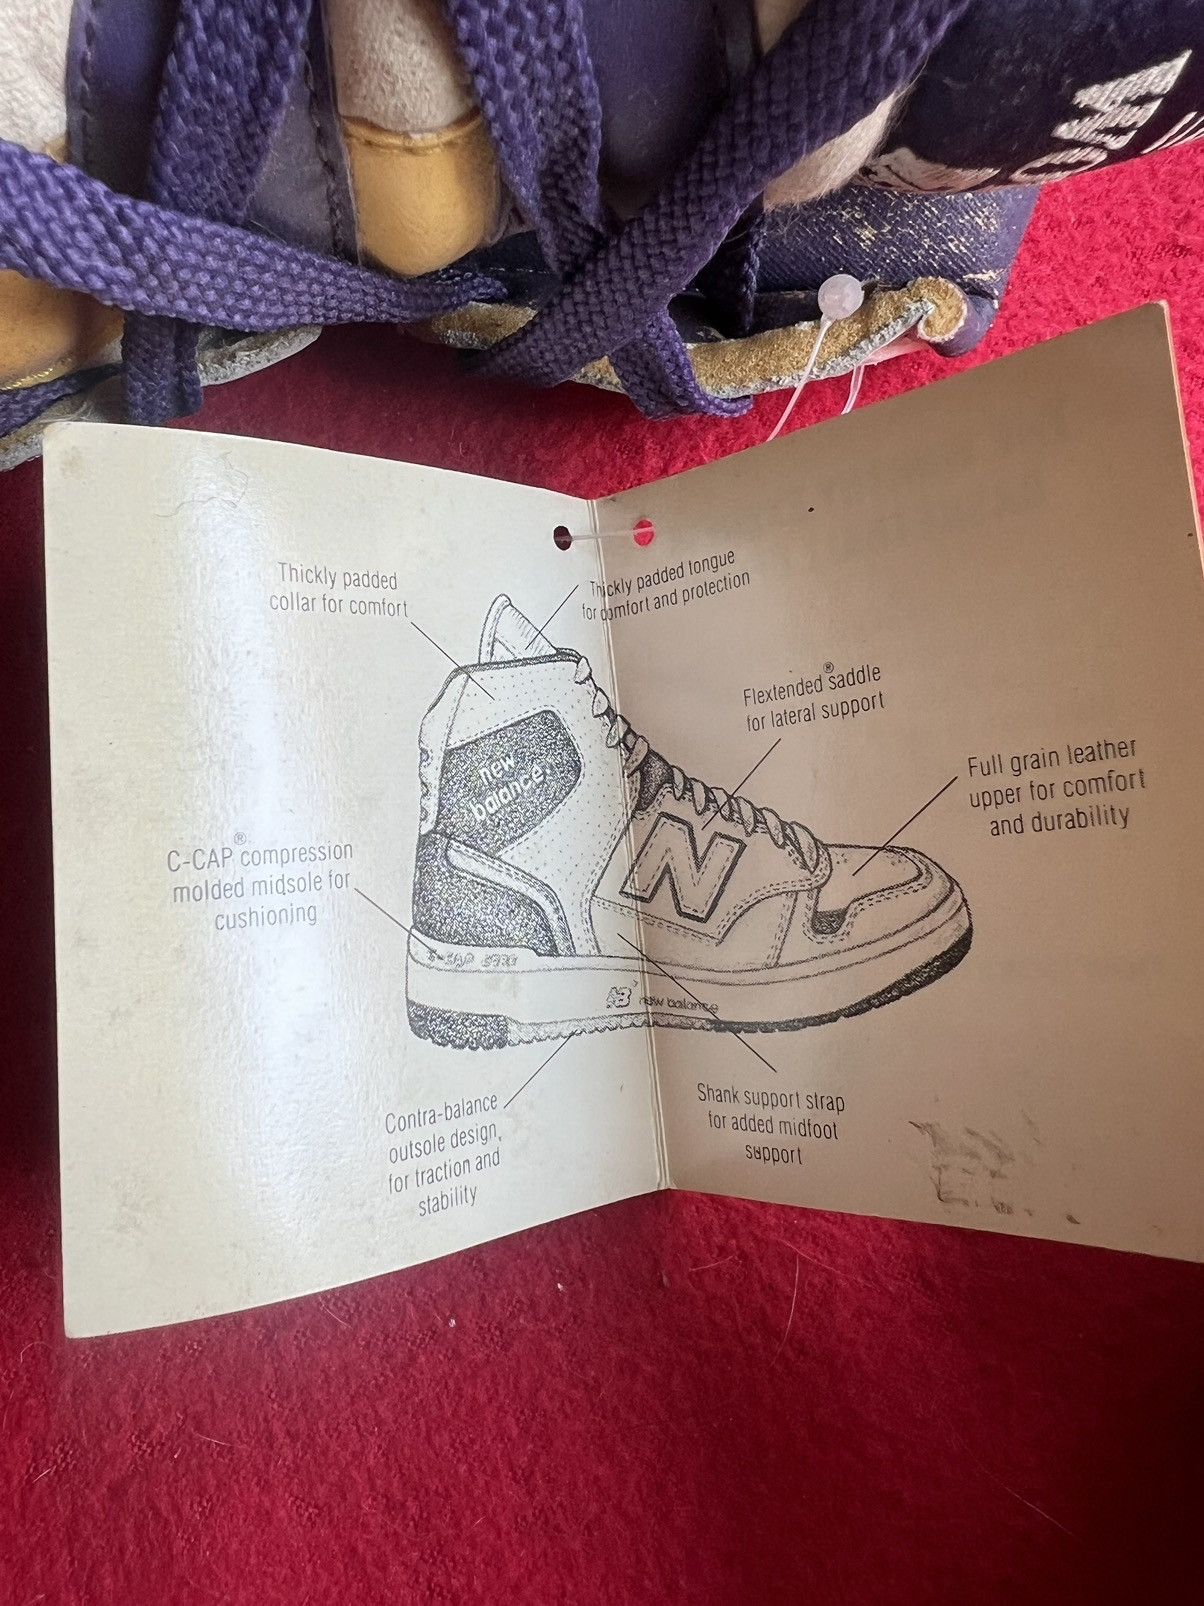 Thickly padded
collar for comfort
Thickly padded tongue
for comfort and protection
Flextended® saddle
for lateral support
Full grain leather
upper for comfort
and durability
new
balance
N
C-CAP® compression
molded midsole for
cushioning
NB new balance
Contra-balance
outsole design,
for traction and
stability
Shank support strap
for added midfoot
support